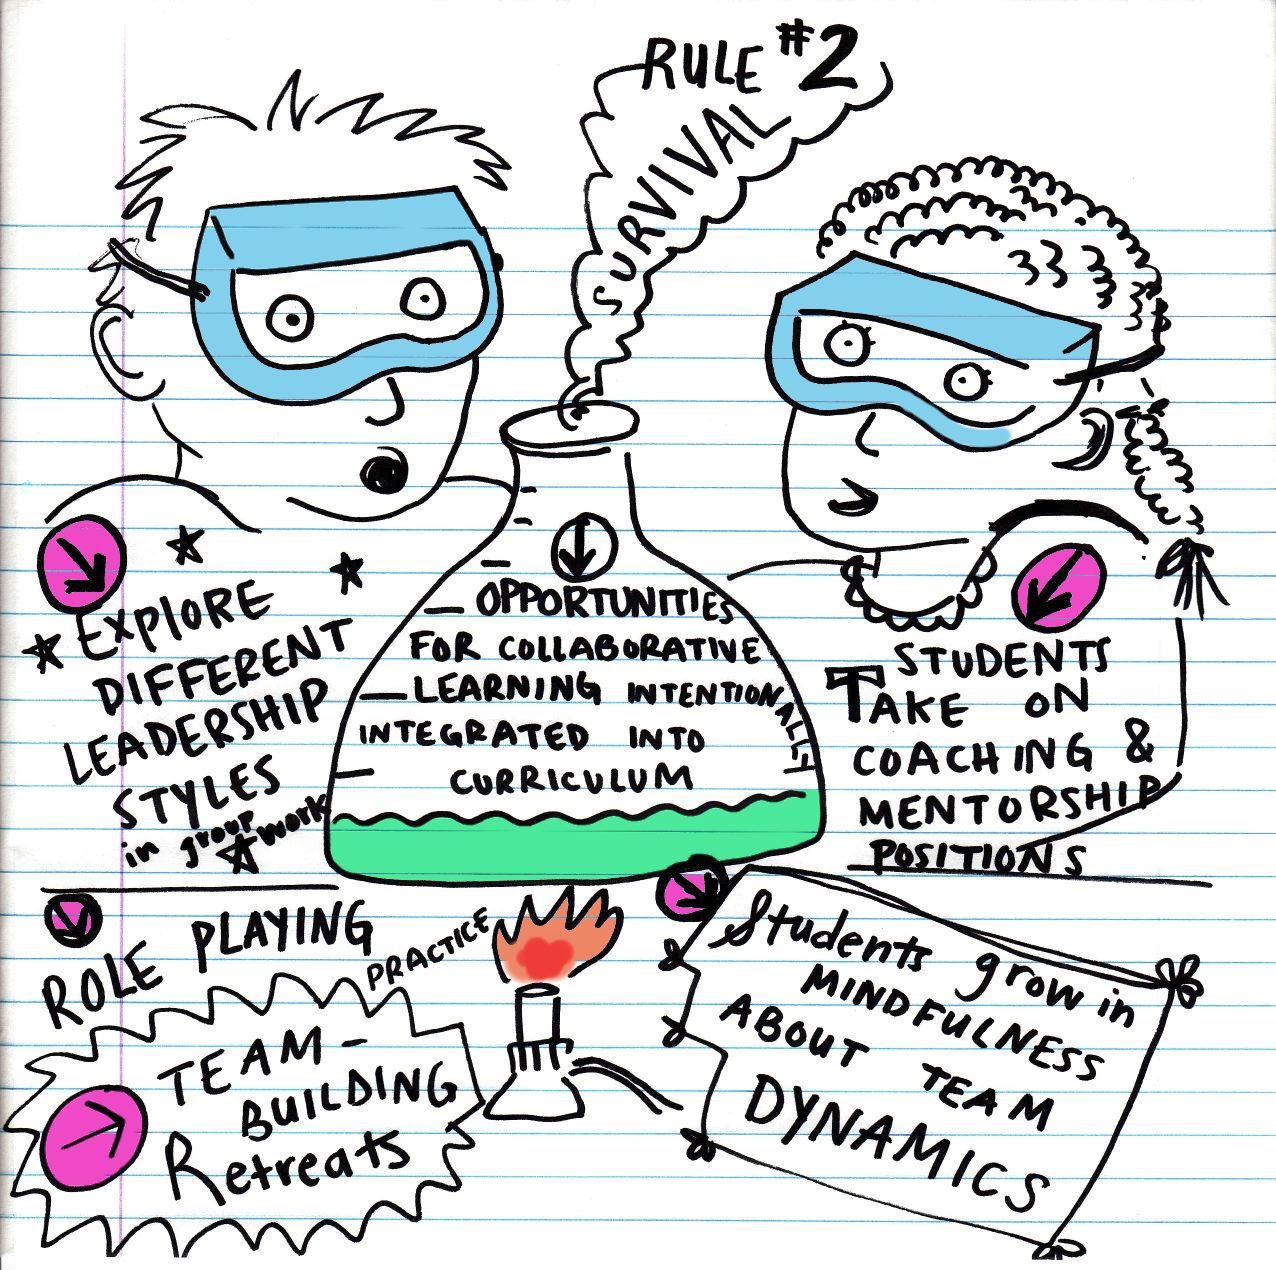 RULE #2
SURVIVAL
OPPORTUNITIES
FOR COLLABORATIVE
LEARNING INTENTIONALLY
INTEGRATED INTO
CURRICULUM
EXPLORE
DIFFERENT
LEADERSHIP
STYLES
in group work
STUDENTS
TAKE ON
COACHING &
MENTORSHIP
POSITIONS
ROLE PLAYING
PRACTICE
TEAM-
BUILDING
Retreats
Students grow in
MINDFULNESS
ABOUT TEAM
DYNAMICS